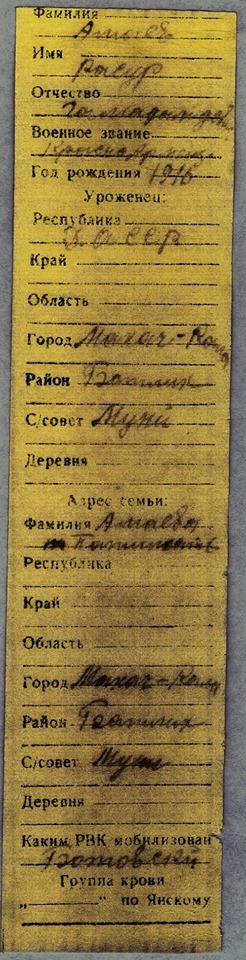 Фамилия
Амаев
Имя
Расур
Отчество
Военное звание
Красноармеец
Год рождения 1916
Уроженец:
Республика
Д.АССР
Край
Область
Город Махач-Кала
Район Ботлих
С/совет Муни
Деревня
Адрес семьи:
Фамилия Амаева
Республика
Край
Область
Город Махач-Кала
Район Ботлих
С/совет Муни
Деревня
Каким РВК мобилизован
Группа крови
„ " по Янскому